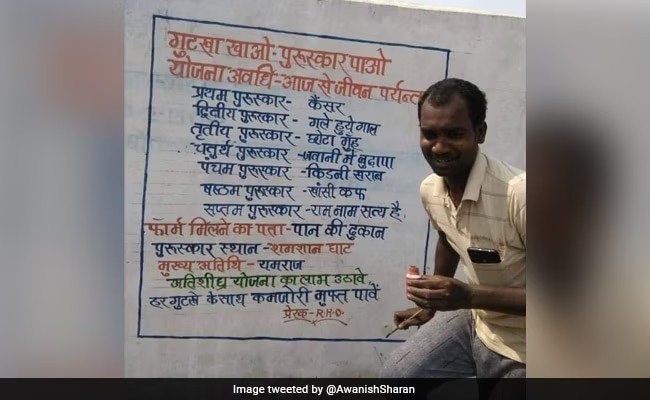 गुटखा खाओ-पुरूस्कार पाओ
योजना अवधि-आज से जीवन पर्यन्त
प्रथम पुरूस्कार- कैंसर
द्वितीय पुरूस्कार - गले हुये गाल
तृतीय पुरूस्कार- छोटा मुँह
चतुर्थ पुरूस्कार -जवानी में बुढापा
पंचम पुरूस्कार -किडनी खराब
षष्ठम पुरूस्कार - खांसी कफ
सप्तम पुरूस्कार -राम नाम सत्य है,
फॉर्म मिलने का पता-पान की दुकान
पुरूस्कार स्थान-शमशान घाट
मुख्य अतिथि - यमराज
अतिशीघ्र योजना का लाभ उठावे
हर गुटखे के साथ कमजोरी मुफ्त पावें
प्रेरक-R.H.O.
Image tweeted by @AwanishSharan